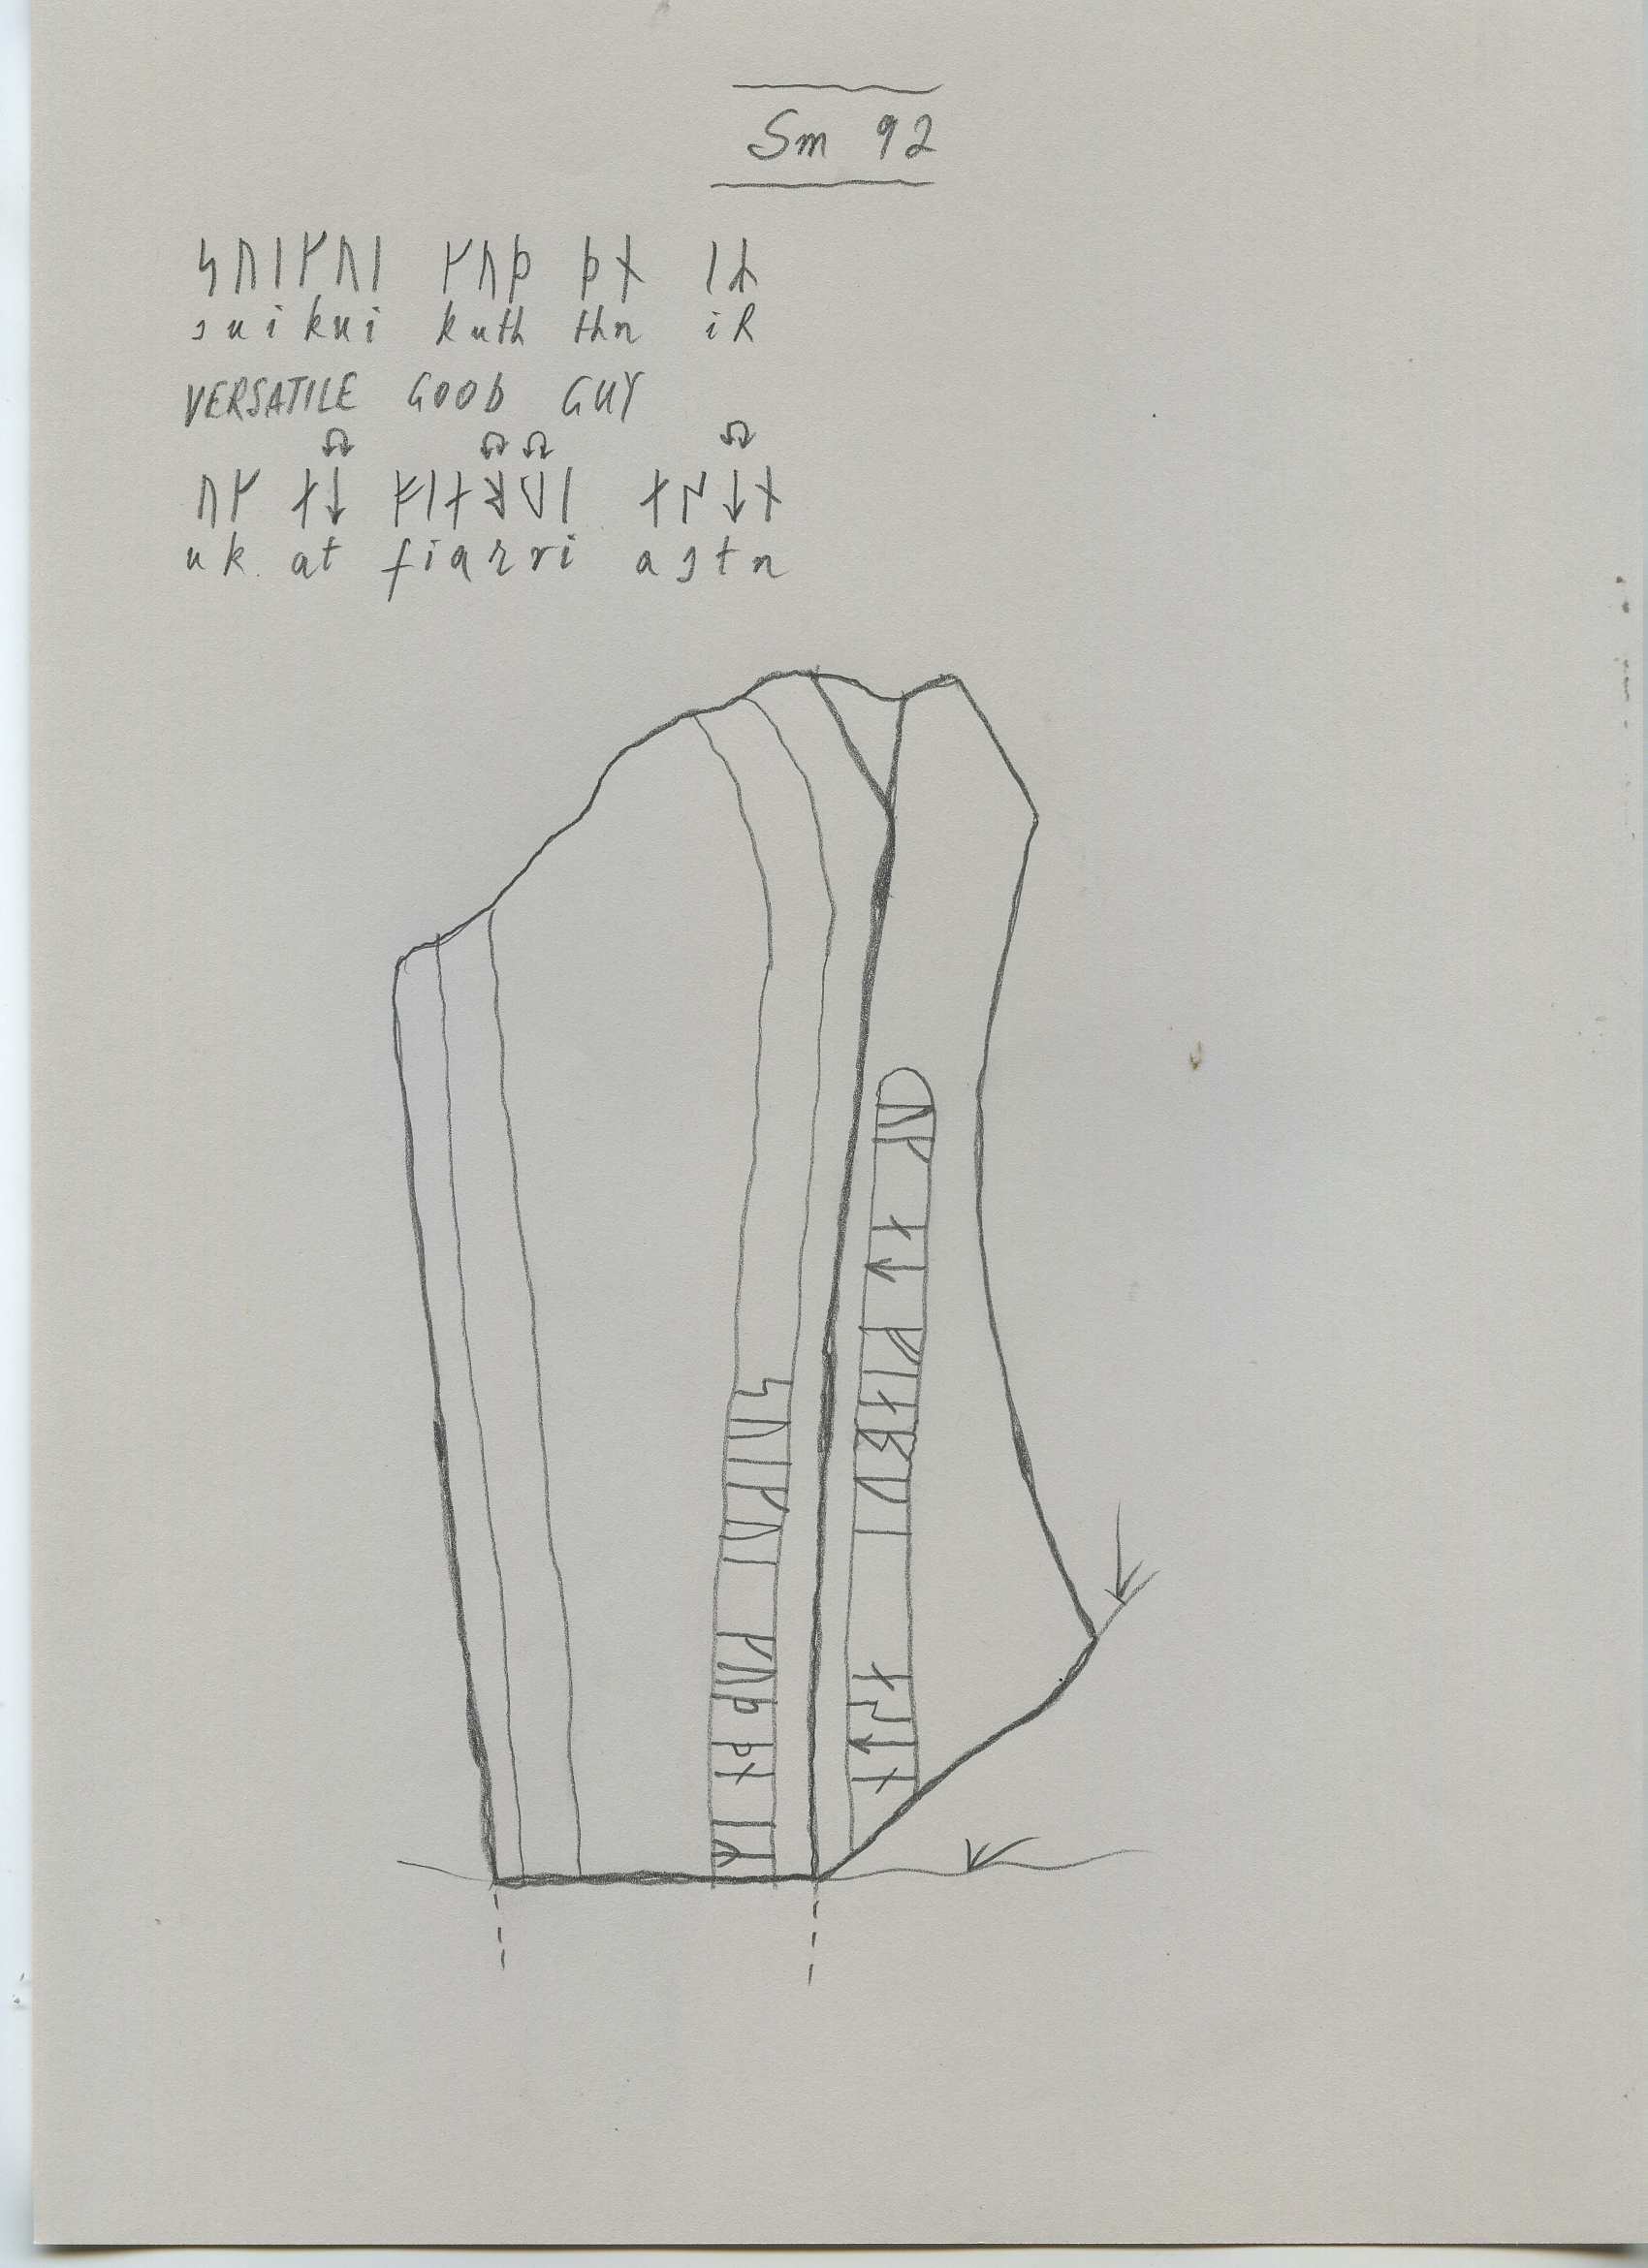 Sm 92
ᛋᚢᛁᚴᚢᛁ ᚴᚢᚦ ᚦᚾ ᛁᛣ
suikui kuth thn iR
VERSATILE GOOD GUY
ᚢᚴ ᛅᛏ ᚠᛁᛅᚱᚱᛁ ᛅᛋᛏᚾ
uk at fiarri astn
ᛋᚢᛁᚴᚢᛁ ᚴᚢᚦ ᚦᚾ ᛁᛣ
ᚢᚴ ᛅᛏ ᚠᛁᛅᚱᚱᛁ ᛅᛋᛏᚾ